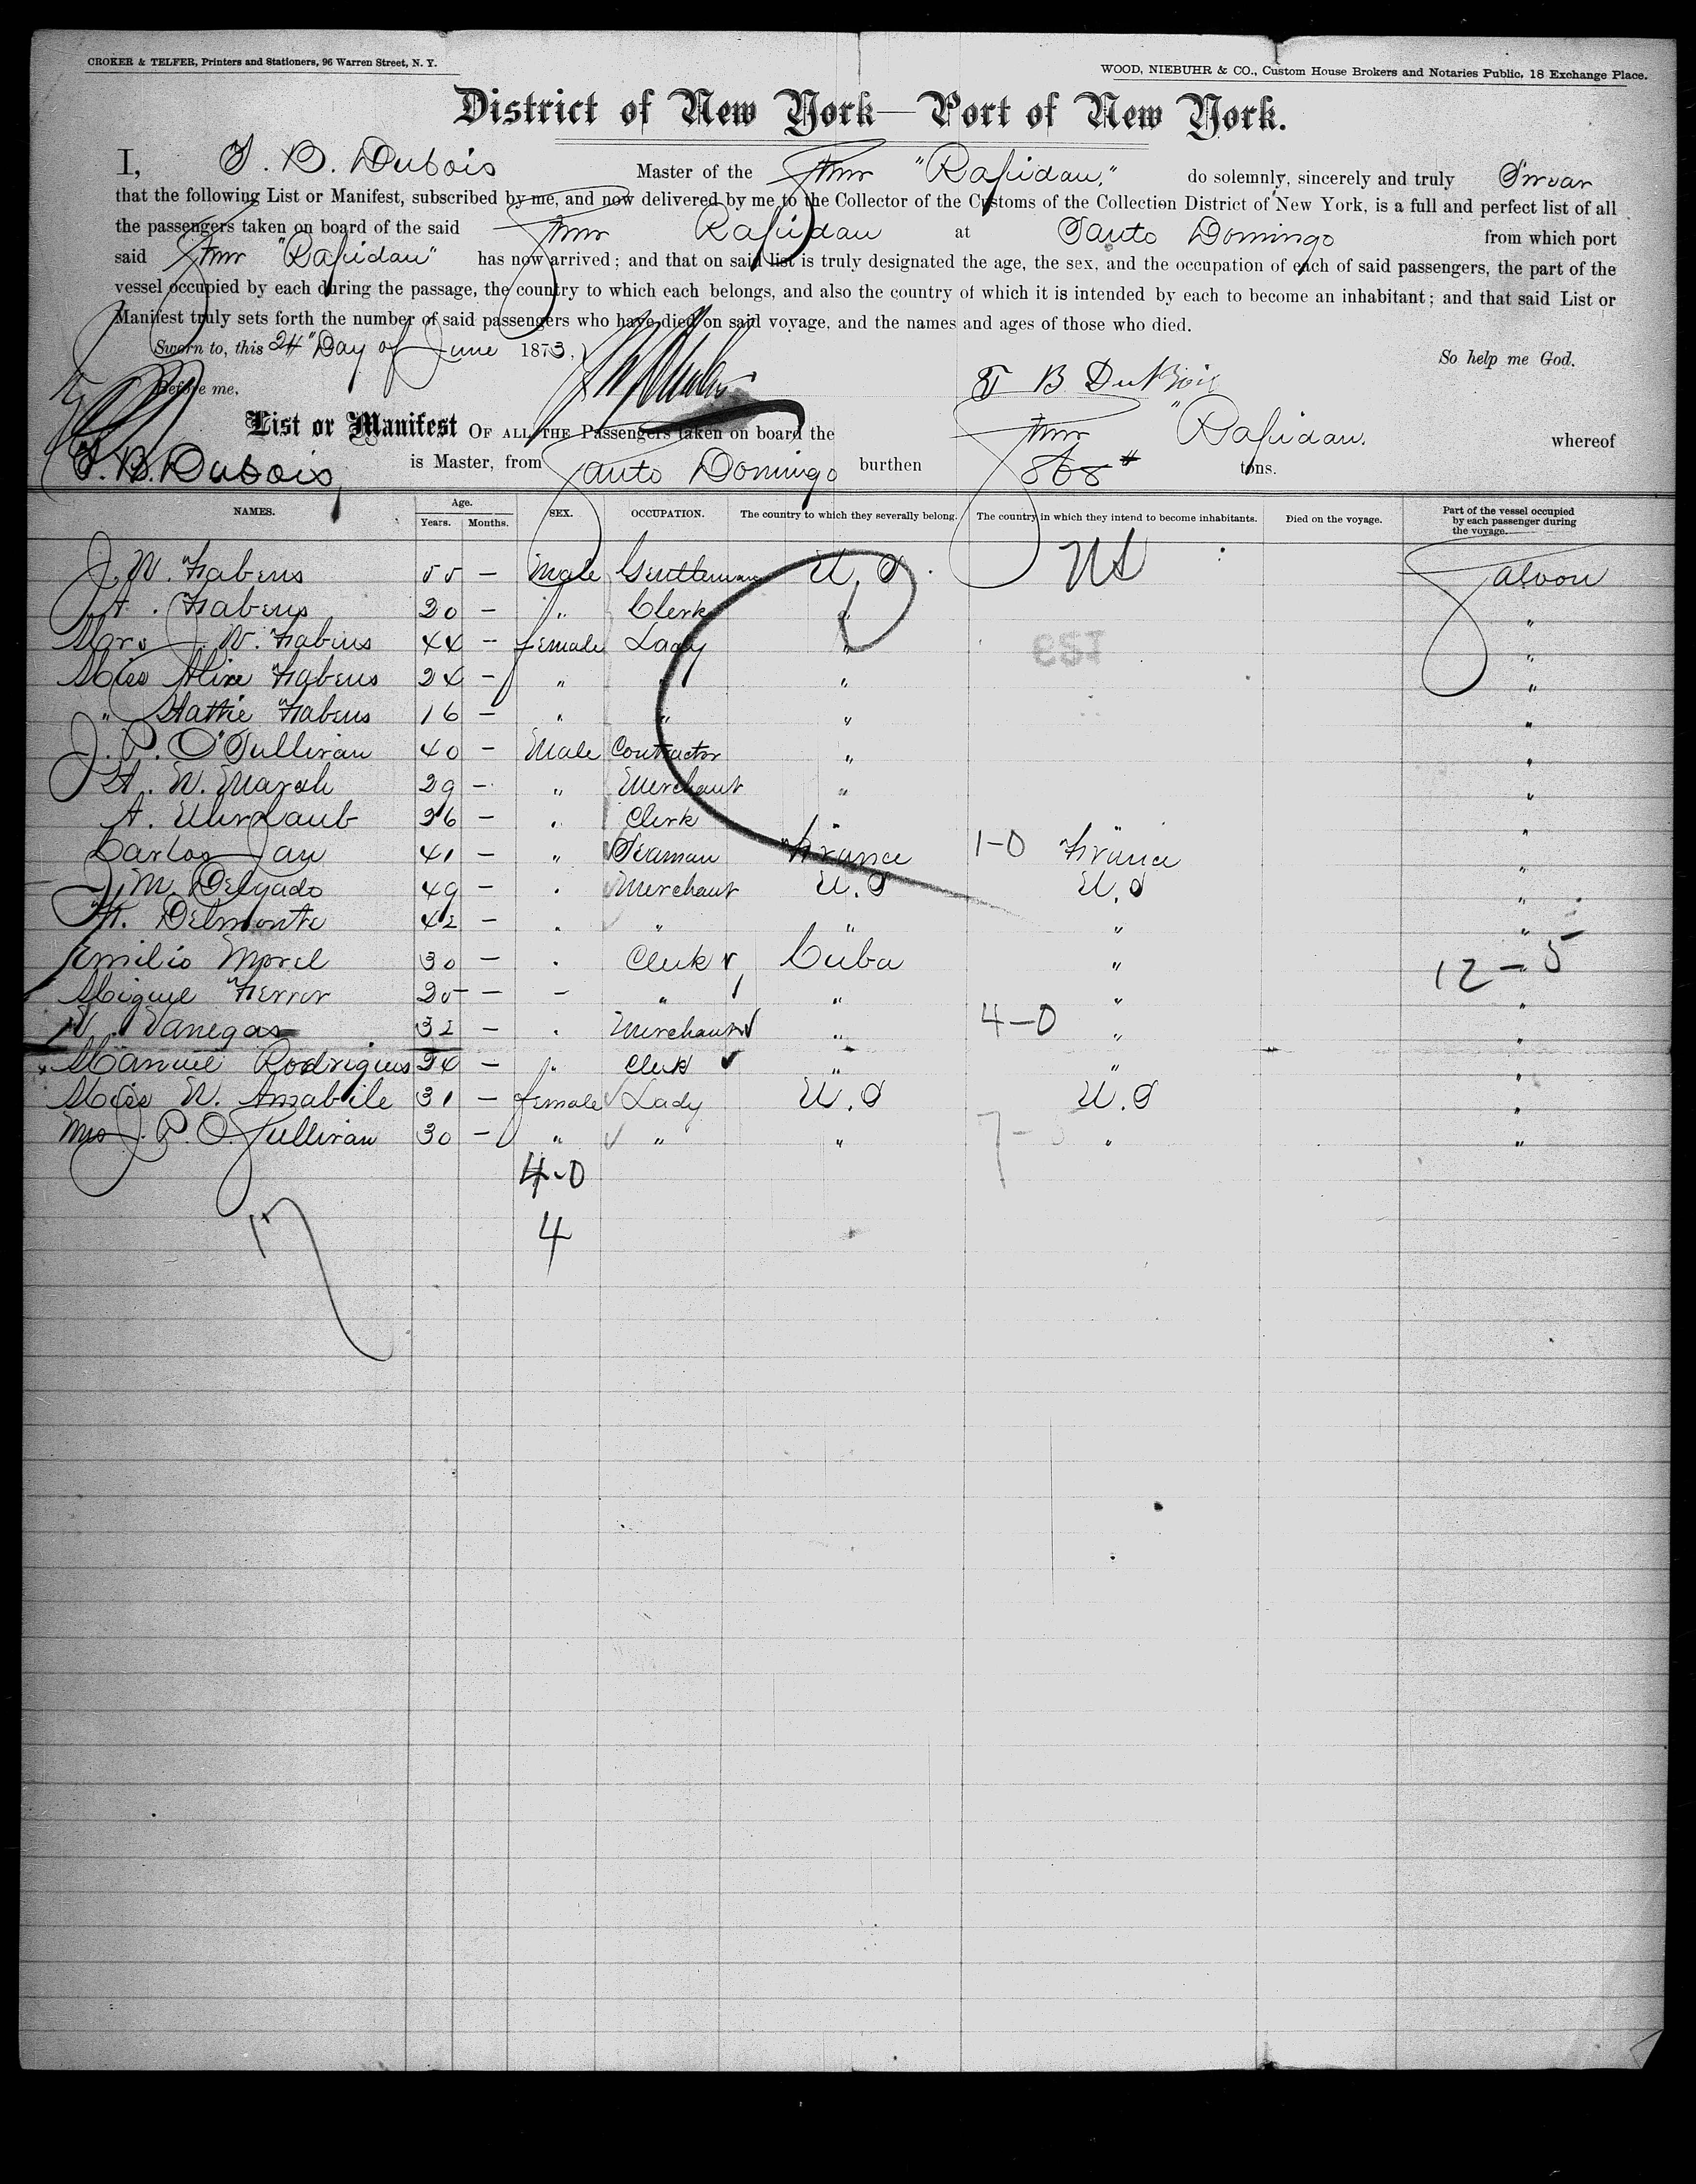 CROKER & TELFER, Printers and Stationers, 96 Warren Street, N. Y.
WOOD, NIEBUHR & CO., Custom House Brokers and Notaries Public, 18 Exchange Place.
District of New York—Port of New York.
I, T. B. Dubois Master of the Stmr "Rapidan," do solemnly, sincerely and truly Swear
that the following List or Manifest, subscribed by me, and now delivered by me to the Collector of the Customs of the Collection District of New York, is a full and perfect list of all
the passengers taken on board of the said Stmr Rapidan at Santo Domingo from which port
said Stmr "Rapidan" has now arrived; and that on said list is truly designated the age, the sex, and the occupation of each of said passengers, the part of the
vessel occupied by each during the passage, the country to which each belongs, and also the country of which it is intended by each to become an inhabitant; and that said List or
Manifest truly sets forth the number of said passengers who have died on said voyage, and the names and ages of those who died.
Sworn to, this 24" Day of June 1873, So help me God.
Before me. T B DuBois
List or Manifest OF ALL THE Passengers taken on board the Stmr "Rapidan. whereof
T. B. Dubois, is Master, from Santo Domingo burthen 868 tons.
NAMES. Age. Years. Months. SEX. OCCUPATION. The country to which they severally belong. The country in which they intend to become inhabitants. Died on the voyage. Part of the vessel occupied by each passenger during the voyage.
J. W. Fabens 55 — Male Gentleman U. S. US Saloon
A. Fabens 20 — " Clerk " "
Mrs J. W. Fabens 44 — female Lady " "
Miss Aline Fabens 24 — " " " "
" Hattie Fabens 16 — " " " "
J. P. O'Sullivan 40 — Male Contractor " "
H. W. Marsh 29 — " Merchant " "
A. 26 — " Clerk " "
Carlos Jan 41 — " Seaman France 1-0 France "
J. M. Delgado 49 — " Merchant U. S U. S "
F. Delmonte 42 — " " " " "
Emilio Morel 30 — " Clerk Cuba " 12-5
Miguel Ferrer 20 — — " " " "
V. Vanegas 32 — " Merchant " 4-0 " "
Manuel Rodrigues 24 — " Clerk " "
Miss N. Amabile 31 — female Lady U. S U. S "
Mrs J. P. O. Sullivan 30 — " " " 7- " "
4-0
17
4